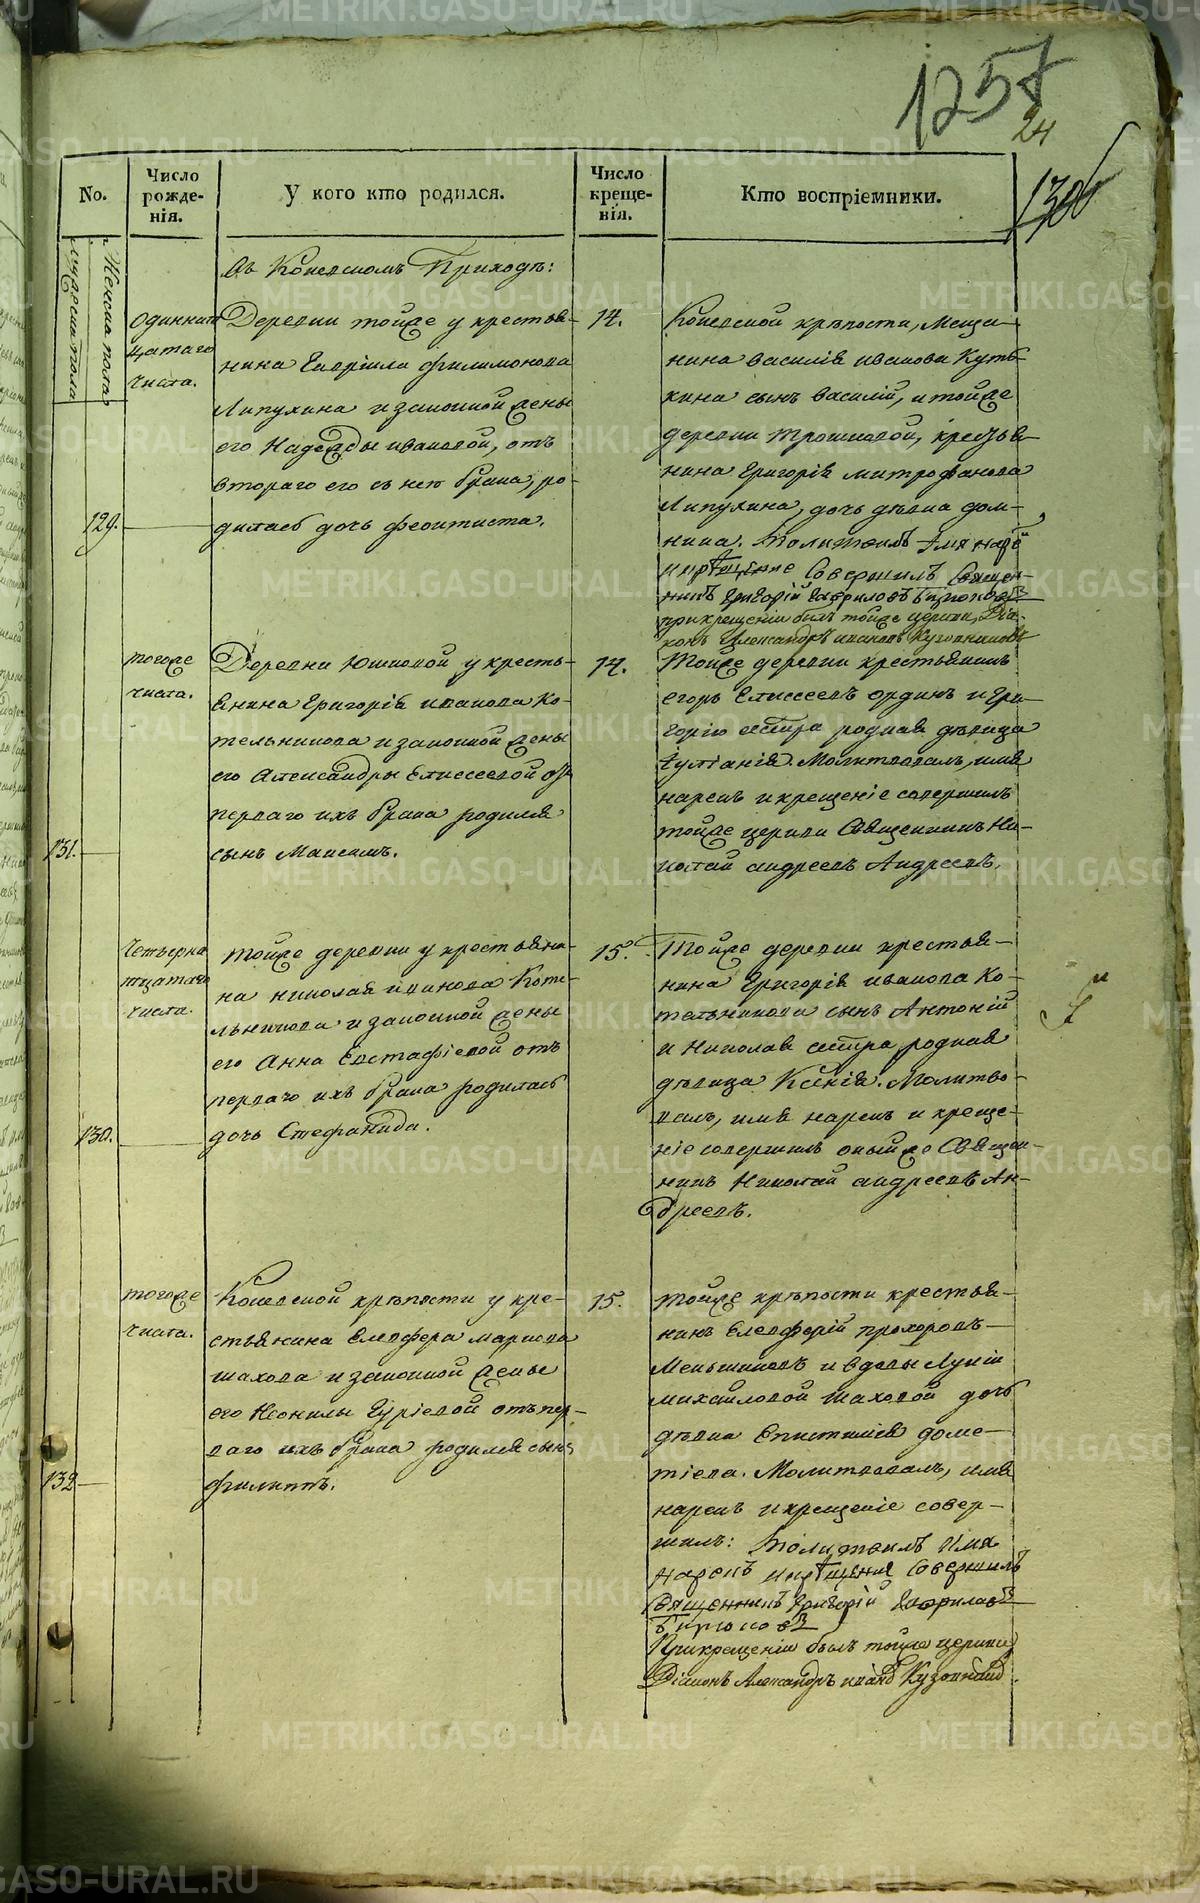 1257
24
130б
No.
Число
рожде-
нія.
У кого кто родился.
Число
креще-
нія.
Кто воспріемники.
Мужеска пола
Женска пола
Въ Коневскомъ Приходѣ:
129.
одиннад
цатаго
числа.
Деревни тойже у крестья-
нина Гавріила Филимонова
Липухина и законной жены
его Надежды Ивановой, отъ
втораго его съ нею брака, ро-
дилась дочь Феоктиста.
14.
Коневской крѣпости, Меща-
нина Василія Иванова Куть-
кина сынъ Василій, и тойже
деревни Трошковой, кресть-
нина Григорія Митрофанова
Липухина, дочь дѣвка Дом-
ника. Молитвилъ Имя наре
икрѣщение Совершилъ Священ-
никъ Григорій Гавриловъ
прикрещеніи былъ тойже церкви, Діа-
конъ Александръ Ивановъ Кузовниковъ
131.
тогоже
числа.
Деревни Юшковой у кресть-
янина Григорія Иванова Ко-
тельникова и законной жены
его Александры Елисеевой отъ
перваго ихъ брака родился
сынъ Максимъ.
14.
Тойже деревни крестьянинъ
Егоръ Елисеевъ Ординъ и Гри-
горію сестра родная дѣвица
Іуліанія. Молитвовалъ, имя
нарекъ и крещеніе совершилъ
тойже церкви Священникъ Ни-
колай Андреевъ Андреевъ.
130.
Четырна
тцатаго
числа.
Тойже деревни у крестьяни-
на Николая Иванова Коте-
льникова и законной жены
его Анна Евстафіевой отъ
перваго ихъ брака родилась
дочь Стефанида.
15.
Тойже деревни крестья-
нина Григорія Иванова Ко-
тельникова сынъ Антоній
и Николая сестра родная
дѣвица Ксенія. Молитво-
валъ, имя нарекъ и креще-
ніе совершилъ оныйже Священ-
никъ Николай Андреевъ Ан-
дреевъ.
132
тогоже
числа.
Коневской крѣпости у кре-
стьянина Елевфера Маркова
Шахова и законной жены
его Неонилы Гуріевой отъ пер-
ваго ихъ брака родился сынъ
Филиппъ.
15.
Тойже крѣпости крестья-
нинъ Елевферій Прохоровъ
Меньшиковъ и вдовы Лукіи
Михайловой Шаховой дочь
дѣвка Епистимія Доме-
тіева. Молитвовалъ, имя
нарекъ и крещеніе совер-
шилъ: Молитвилъ Имя
нарекъ икрѣщения Совершилъ
Священникъ Григорій Гавриловъ
Прикрещеніи былъ тойже церкви,
Діаконъ Александръ Иванъ Кузовников.
METRIKI.GASO-URAL.RU